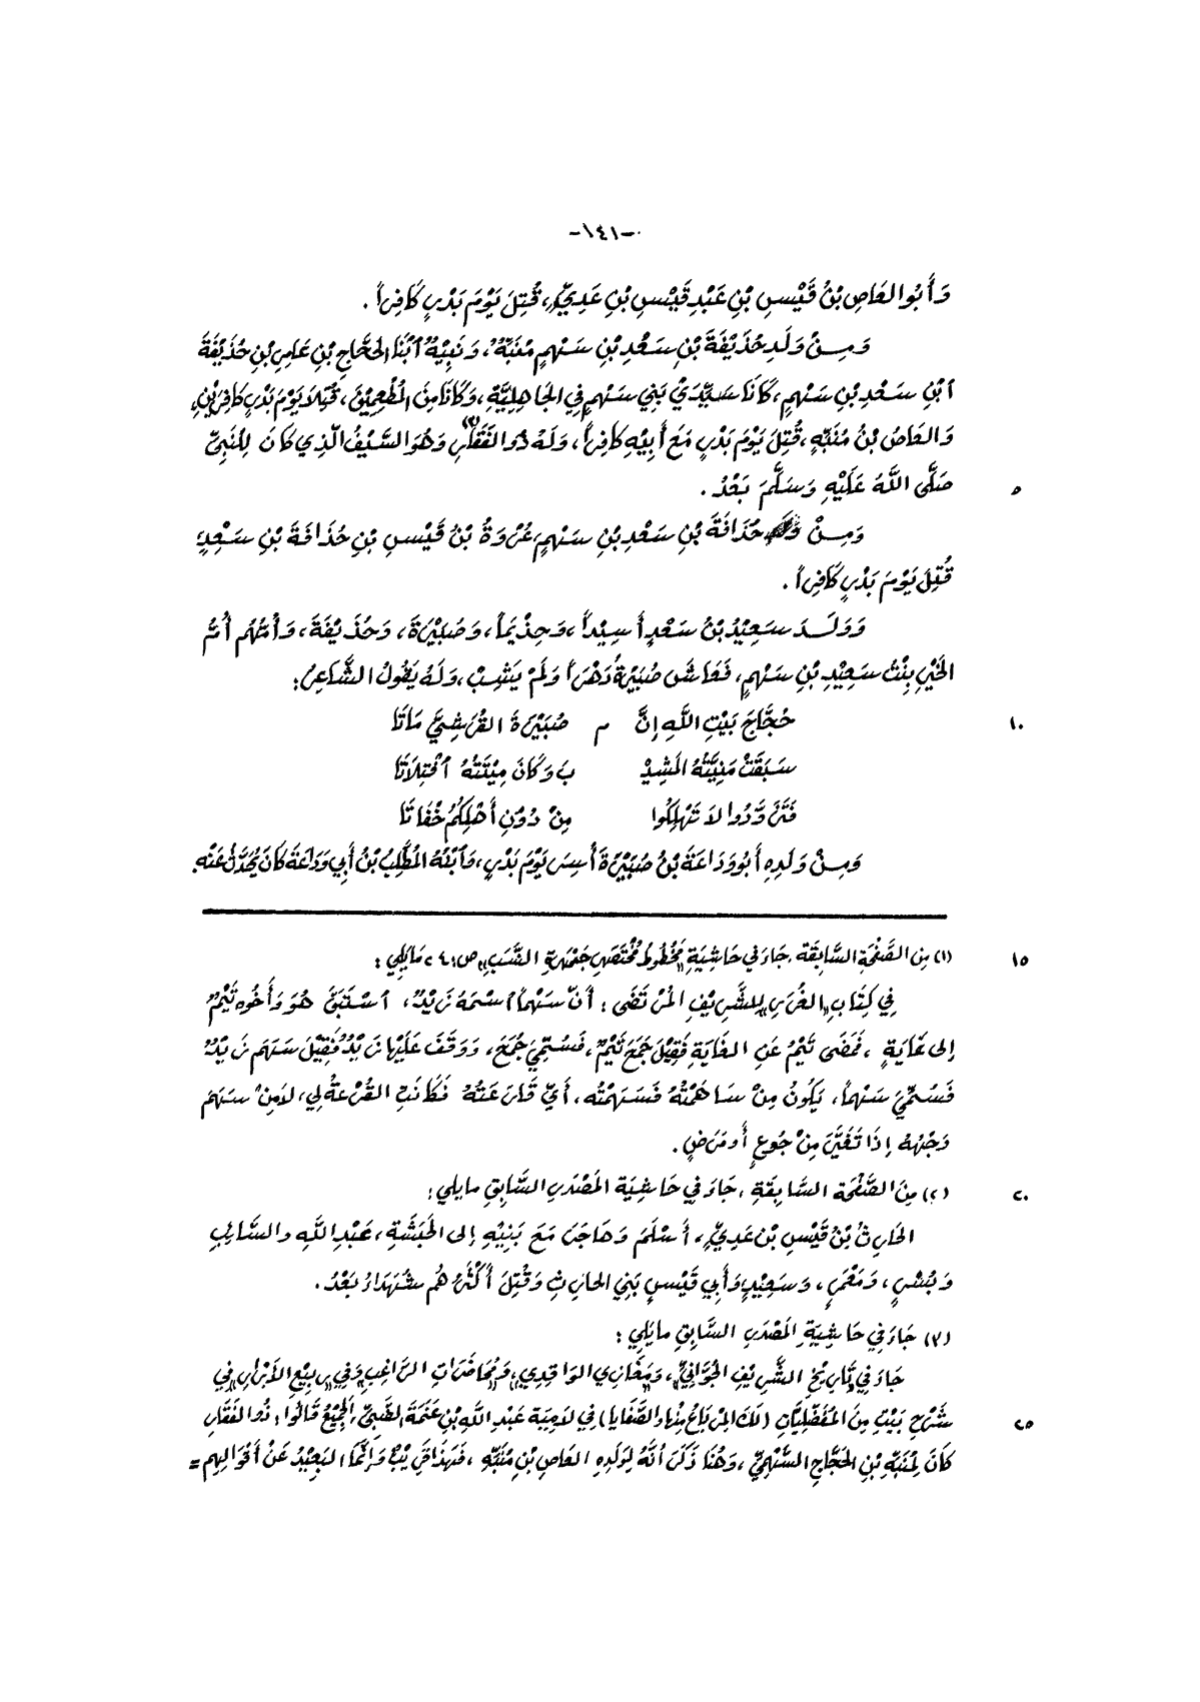 -١٤١-
وَأَبُو العَاصِ بْنُ قَيْسِ بْنِ عَبْدِ قَيْسِ بْنِ عَدِيٍّ، قُتِلَ يَوْمَ بَدْرٍ كَافِراً .
وَمِنْ وَلَدِ حُذَيْفَةَ بْنِ سَعْدِ بْنِ سَهْمٍ مُنَبِّهٌ، وَنَبِيْهٌ ٱبْنَا الحَجَّاجِ بْنِ عَامِرِ بْنِ حُذَيْفَةَ
ٱبْنِ سَعْدِ بْنِ سَهْمٍ، كَانَا سَيِّدَيْ بَنِي سَهْمٍ فِي الجَاهِلِيَّةِ، وَكَانَا مِنَ المُطْعِمِيْنَ، قُتِلَا يَوْمَ بَدْرٍ كَافِرَيْنِ،
وَالعَاصُ بْنُ مُنَبِّهٍ، قُتِلَ يَوْمَ بَدْرٍ مَعَ أَبِيْهِ كَافِراً، وَلَهُ ذُو الفَقَارِ(٣) وَهُوَ السَّيْفُ الَّذِي كَانَ لِلنَّبِيِّ
صَلَّى اللَّهُ عَلَيْهِ وَسَلَّمَ بَعْدُ . ٥
وَمِنْ وَلَدِ حُذَافَةَ بْنِ سَعْدِ بْنِ سَهْمٍ، عُرْوَةُ بْنُ قَيْسِ بْنِ حُذَافَةَ بْنِ سَعْدٍ،
قُتِلَ يَوْمَ بَدْرٍ كَافِراً .
وَوَلَدَ سَعِيْدُ بْنُ سَعْدٍ أَسِيْداً، وَحِذْيَماً، وَصُبَيْرَةَ، وَحُذَيْفَةَ، وَأُمُّهُم أُمُّ
الخَيْرِ بِنْتُ سَعِيْدِ بْنِ سَهْمٍ، فَعَاشَ صُبَيْرَةُ دَهْراً وَلَمْ يَشِبْ، وَلَهُ يَقُولُ الشَّاعِرُ :
حُجَّاجَ بَيْتِ اللَّهِ إِنَّ م صُبَيْرَةَ القُرَشِيَّ مَاتَا ١٠
سَبَقَتْ مَنِيَّتُهُ المَشِيْـ بَ وَكَانَ مِيْتَتُهُ ٱفْتِلَاتَا
فَتَزَوَّدُوا لَا تَهْلِكُوا مِنْ دُوْنِ أَهْلِكُمُ خُفَاتَا
وَمِنْ وَلَدِهِ أَبُو وَدَاعَةَ بْنُ صُبَيْرَةَ أُسِرَ يَوْمَ بَدْرٍ، وَٱبْنُهُ المُطَّلِبُ بْنُ أَبِي وَدَاعَةَ كَانَ يُحَدَّثُ عَنْهُ.
(١) مِنَ الصَّفْحَةِ السَّابِقَة. جَاءَ فِي حَاشِيَةِ مَخْطُوطِ مُخْتَصَرِ جَمْهَرَةِ النَّسَبِ، ص: ٤١ مَايَلِي : ١٥
فِي كِتَابِ «الغُرَرِ» لِلشَّرِيْفِ المُرْتَضَى : أَنَّ سَهْماً ٱسْمُهُ زَيْدٌ، ٱسْتَبَقَ هُوَ وَأَخُوه تَيْمٌ
إِلَى غَايَةٍ، فَمَضَى تَيْمٌ عَنِ الغَايَةِ فَقِيْلَ جَمَحَ تَيْمٌ، فَسُمِّيَ جُمَحَ، وَوَقَفَ عَلَيْهَا زَيْدٌ فَقِيْلَ سَهَمَ زَيْدٌ
فَسُمِّيَ سَهْماً، يَكُونُ مِنْ سَاهَمْتُهُ فَسَهَمْتُه، أَيْ قَارَعْتُهُ فَكَانَتِ القُرْعَةُ لِي، لَا مِنْ سَهَمَ
وَجْهُهُ إِذَا تَغَيَّرَ مِنْ جُوعٍ أَو مَرَضٍ .
(٢) مِنَ الصَّفْحَةِ السَّابِقَةِ، جَاءَ فِي حَاشِيَةِ المَصْدَرِ السَّابِقِ مايلي : ٢٠
الحَارِثُ بْنُ قَيْسِ بْنِ عَدِيٍّ، أَسْلَمَ وَهَاجَرَ مَعَ بَنِيْهِ إلى الحَبَشَةِ، عَبْدِ اللَّهِ والسَّائِبِ
وَبِشْرٍ، وَمَعْمَرٍ، وَسَعِيْدٍ وَأَبِي قَيْسٍ بَنِي الحَارِثِ وَقُتِلَ أَكْثَرُهُم شُهَدَاءَ بَعْدُ .
(٣) جَاءَ فِي حَاشِيَةِ المَصْدَرِ السَّابِقِ مايَلِي :
جَاءَ فِي تَارِيْخِ الشَّرِيْفِ الجَوَّانِيِّ، وَمَغَازِي الوَاقِدِي، وَمُحَاضَرَاتِ الرَّاغِبِ وَفِي رَبِيْعِ الأَبْرَارِ فِي
شَرْحِ بَيْتٍ مِنَ المُفَضَّلِيَّاتِ (لَكَ المِرْبَاعُ مِنْهَا وَالصَّفَايَا) فِي لَامِيَة عَبْدِ اللَّهِ بْنِ عَنَمَةَ الضَّبِّيِّ، الجَمِيْعُ قَالُوا : ذُو الفَقَارِ ٢٥
كَانَ لِمُنَبِّهِ بْنِ الحَجَّاجِ السَّهْمِيِّ، وَهُنَا ذَكَرَ أَنَّهُ لِوَلَدِهِ العَاصِ بْنِ مُنَبِّهِ، فَهَذَا قَرِيْبٌ وَإِنَّمَا البَعِيْدُ عَنْ أَقْوَالِهِم =